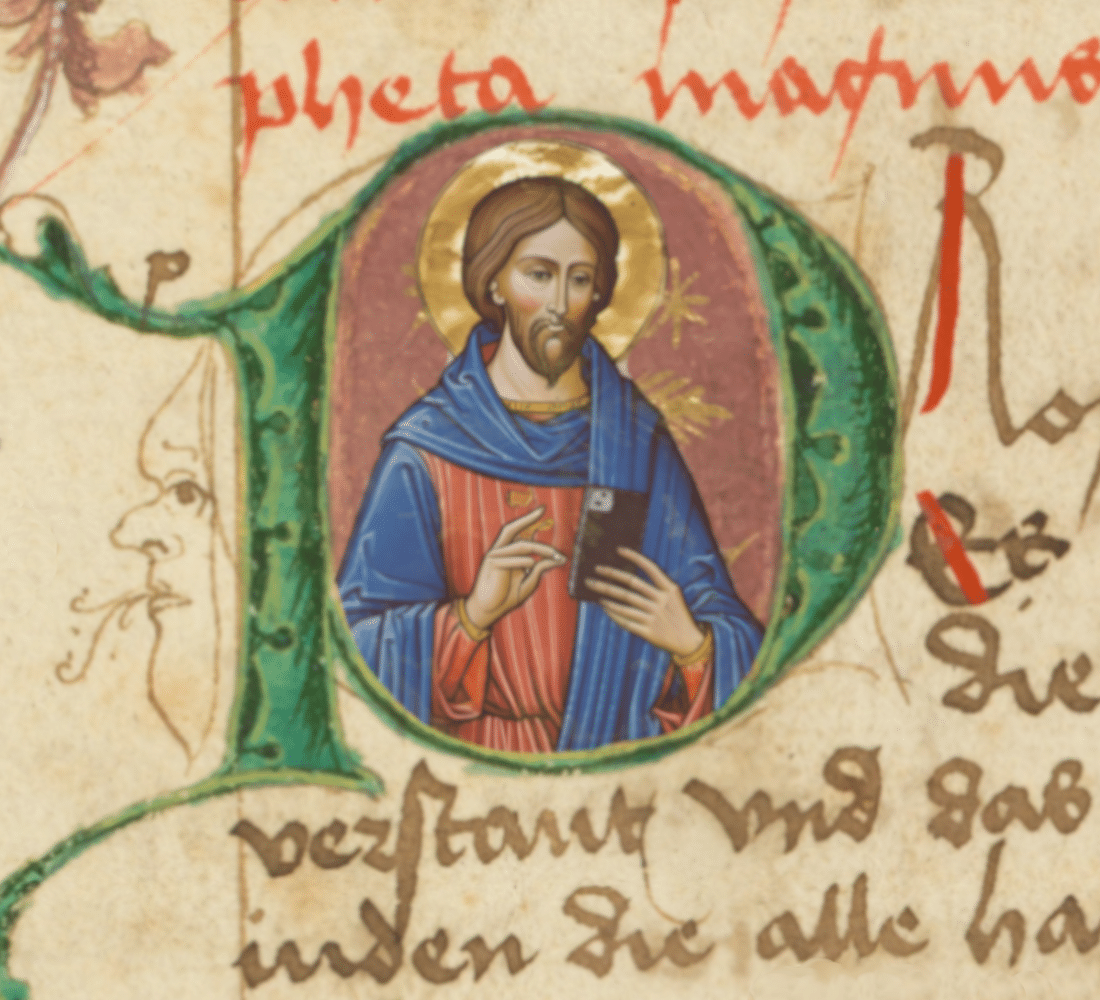 pheta magnus
P
Ro
Et
die
verstant vnd das
inden die alle ha